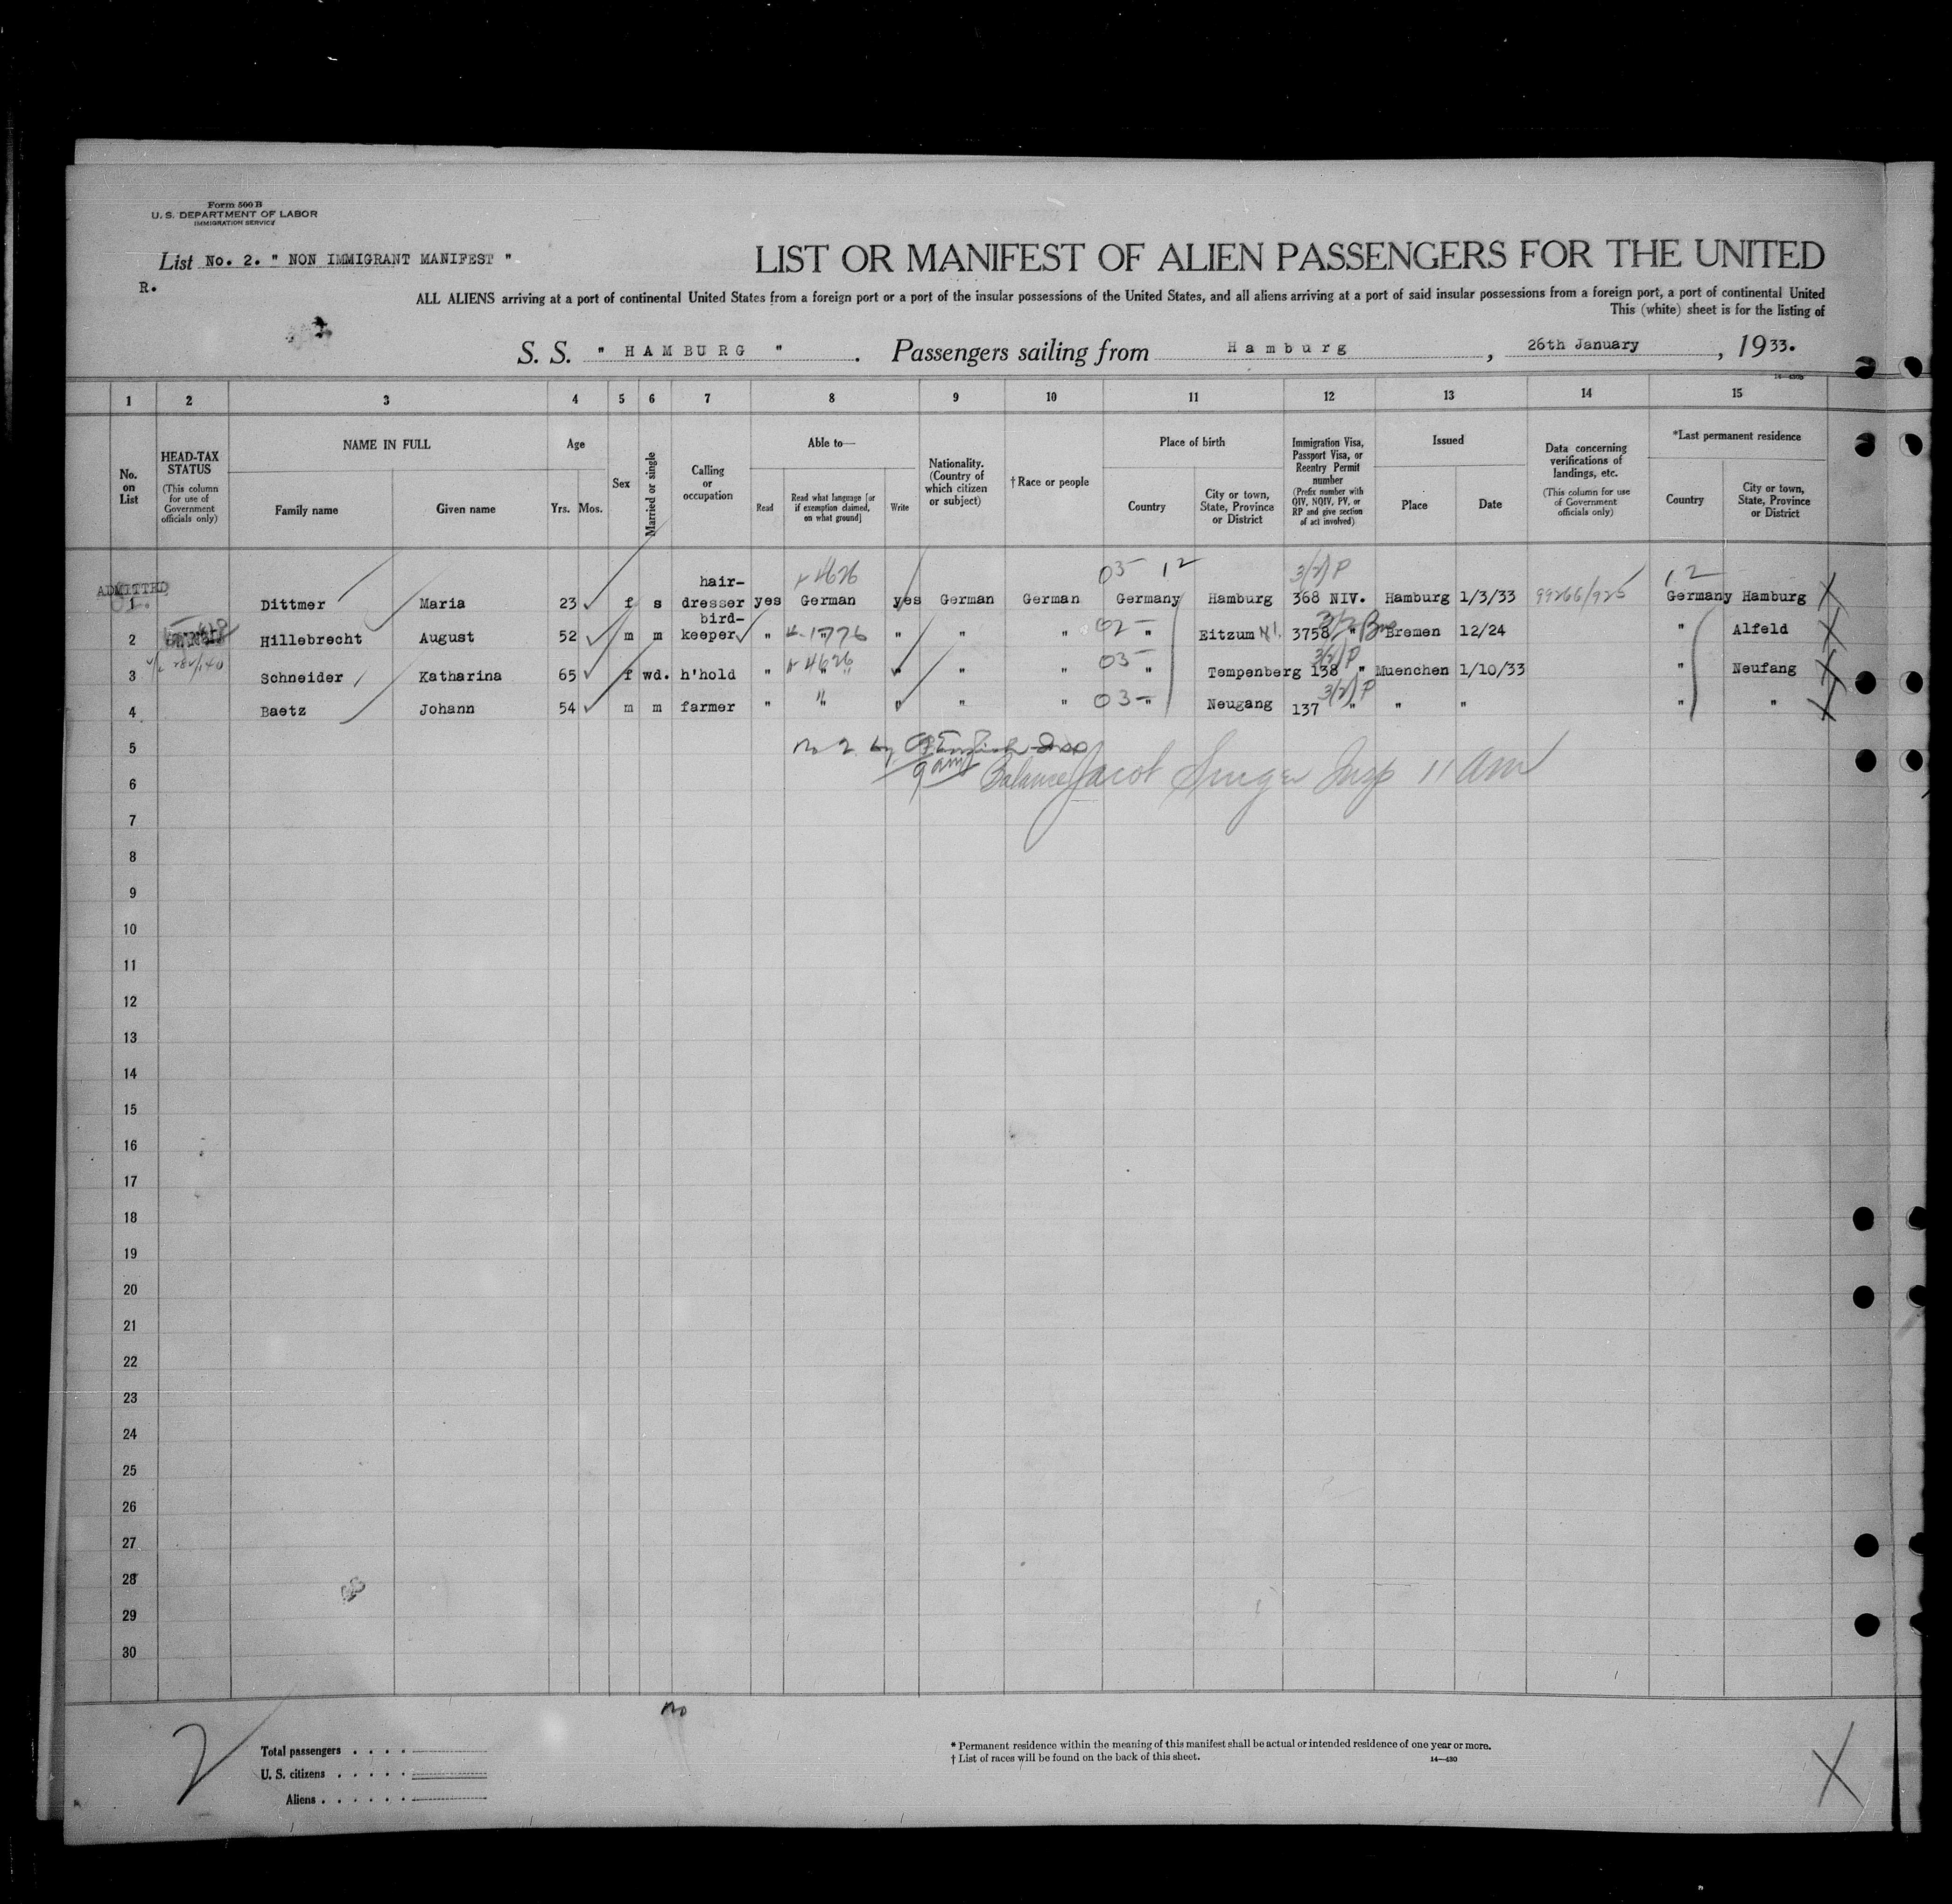 Form 500 B
U. S. DEPARTMENT OF LABOR
IMMIGRATION SERVICE
List No. 2. " NON IMMIGRANT MANIFEST "
R.
LIST OR MANIFEST OF ALIEN PASSENGERS FOR THE UNITED
ALL ALIENS arriving at a port of continental United States from a foreign port or a port of the insular possessions of the United States, and all aliens arriving at a port of said insular possessions from a foreign port, a port of continental United
This (white) sheet is for the listing of
S. S. " HAMBURG " . Passengers sailing from Hamburg , 26th January , 1933.
1 2 3 4 5 6 7 8 9 10 11 12 13 14 15
No. on List
HEAD-TAX STATUS (This column for use of Government officials only)
NAME IN FULL
Family name Given name
Age
Yrs. Mos.
Sex
Married or single
Calling or occupation
Able to—
Read
Read what language [or if exemption claimed, on what ground]
Write
Nationality. (Country of which citizen or subject)
†Race or people
Place of birth
Country City or town, State, Province or District
Immigration Visa, Passport Visa, or Reentry Permit number (Prefix number with QIV, NQIV, PV, or RP and give section of act involved)
Issued
Place Date
Data concerning verifications of landings, etc. (This column for use of Government officials only)
*Last permanent residence
Country City or town, State, Province or District
4626 03 12 3/2/P 12
ADMITTED
1 Dittmer Maria 23 f s hair-dresser yes German yes German German Germany Hamburg 368 NIV. Hamburg 1/3/33 99266/925 Germany Hamburg
1776 02
2 Hillebrecht August 52 m m bird-keeper " " " " " " Eitzum 3758 " Bremen 12/24 " Alfeld
4626 03 3/2/P
3 Schneider Katharina 65 f wd. h'hold " " " " " " Tempenberg 138 " Muenchen 1/10/33 " Neufang
03 3/2/P
4 Baetz Johann 54 m m farmer " " " " " " Neugang 137 " " " " "
5
No 2 by
9 am
Balance Jacob Singer Insp 11 AM
6
7
8
9
10
11
12
13
14
15
16
17
18
19
20
21
22
23
24
25
26
27
28
29
30
no
2
Total passengers
U. S. citizens
Aliens
* Permanent residence within the meaning of this manifest shall be actual or intended residence of one year or more.
† List of races will be found on the back of this sheet.
14—430
X